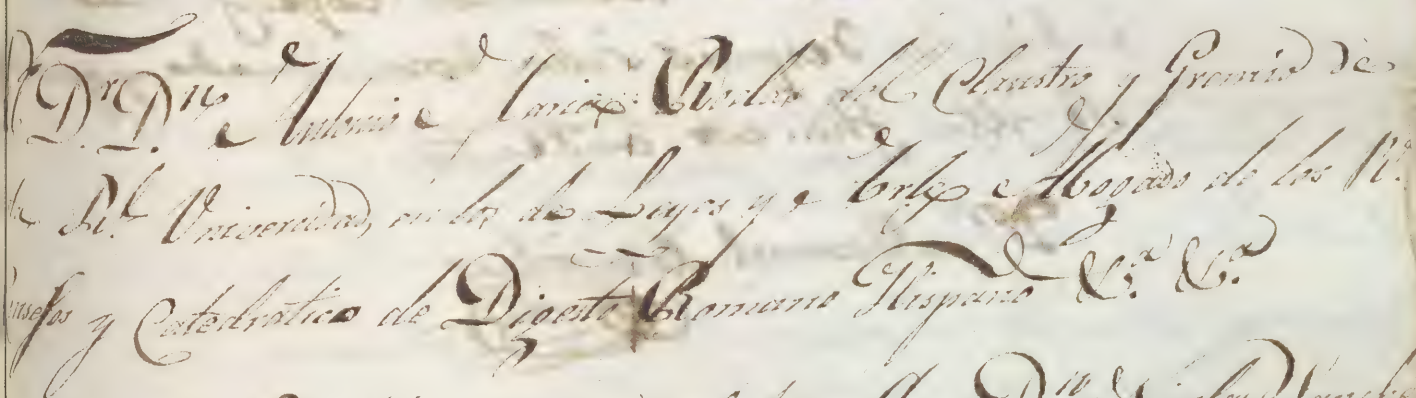 Dr. Dn. Antonio Maria del Claustro y Gremio de
Rl. Universidad, en las de Leyes y Artes Abogado de los Rs.
y Catedratico de Digesto Romano Hispano &.a &.a
Dn.